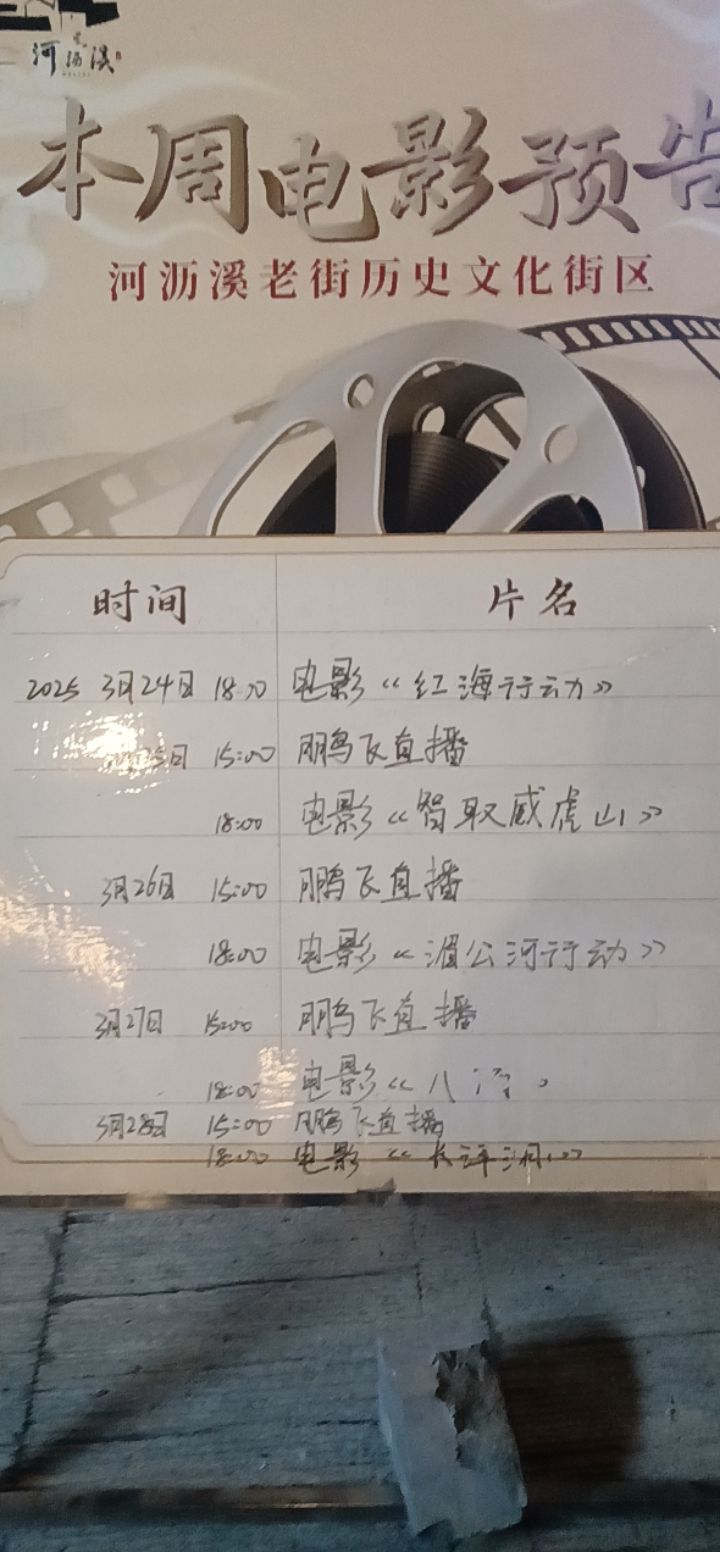 河沥溪
本周电影预告
河沥溪老街历史文化街区
时间 片名
2025 3月24日 18:00 电影《红海行动》
25日 15:00 鹏飞直播
18:00 电影《智取威虎山》
3月26日 15:00 鹏飞直播
18:00 电影《湄公河行动》
3月27日 15:00 鹏飞直播
18:00 电影《八
3月28日 15:00 鹏飞直播
18:00 电影《长津湖》